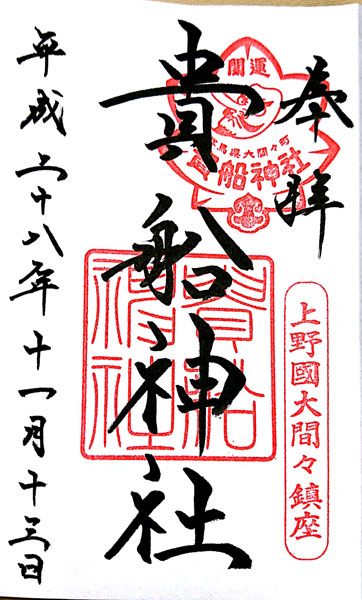 奉拝
開運
群馬県大間々町
貴船神社
上野國大間々鎮座
貴船神社
貴船
神社
平成二十八年十一月十三日